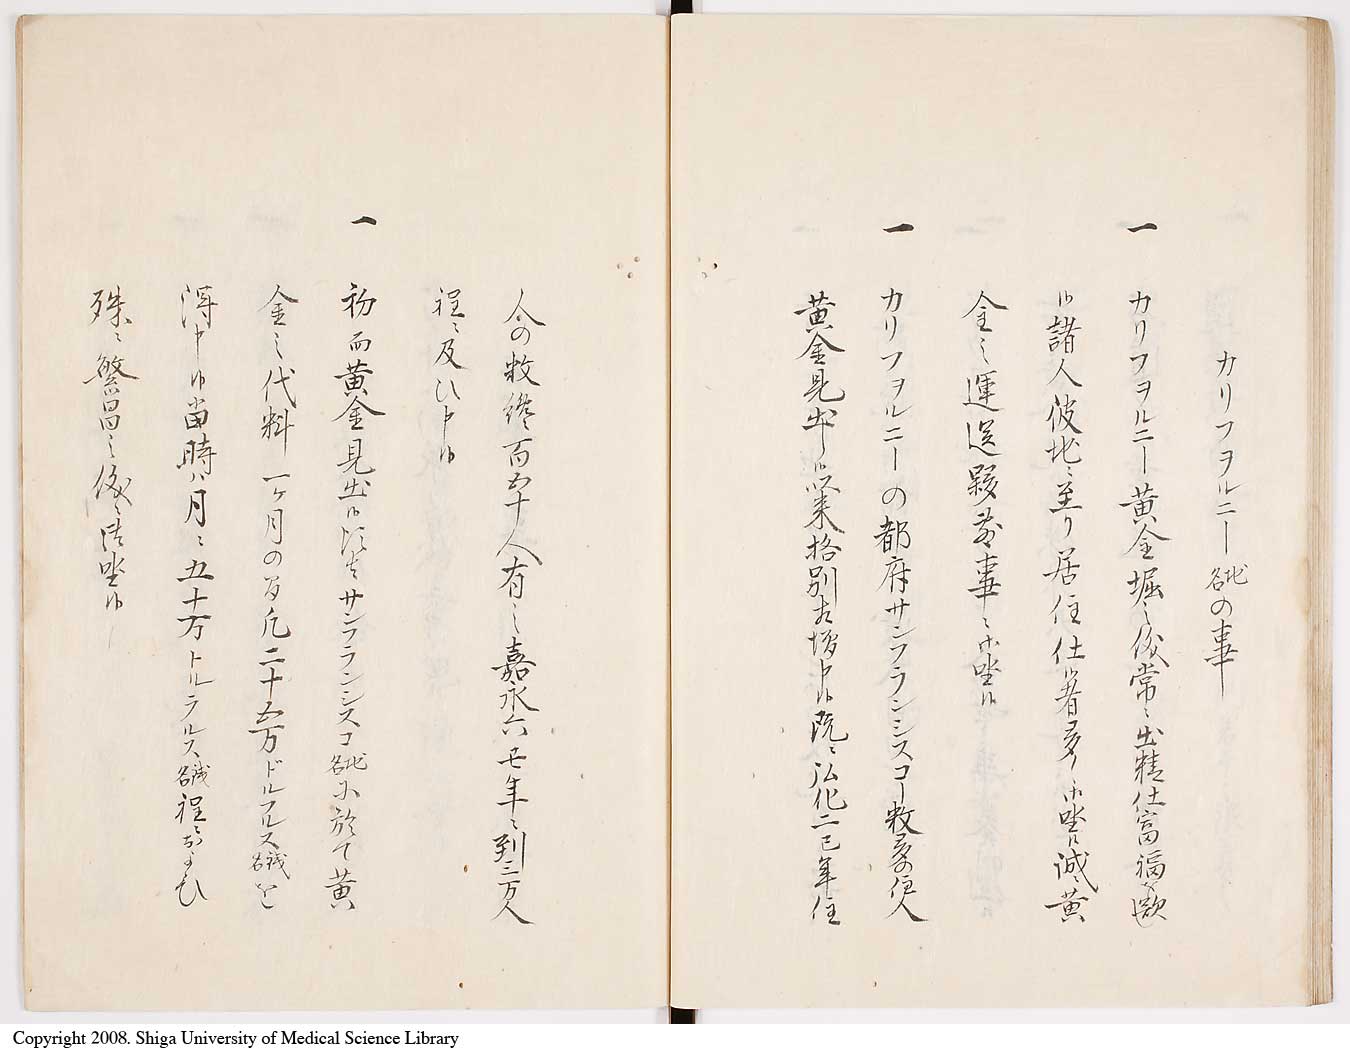 カリフヲルニー地名の事
一 カリフヲルニー黄金堀之儀常ニ出精仕富福を歓
候諸人彼地ニ至り居住仕候者多ク御坐候誠ニ黄
金之運送夥敷事ニ御坐候
一 カリフヲルニーの都府サンフランシスコー数多の住人
黄金見出し候以来格別相増申候既ニ弘化二巳年住
人の数纔百五十人有之嘉永六丑年ニ到三万人
程ニ及ひ申候
一 初而黄金見出候頃はサンフランシスコ地名に於て黄
金之代料一ヶ月の間凡二十五万ドルラルス銭名を
得申候当時ハ月ニ五十万トルラルス銭名程ニおよひ
殊ニ繁昌之儀ニ御坐候
Copyright 2008. Shiga University of Medical Science Library